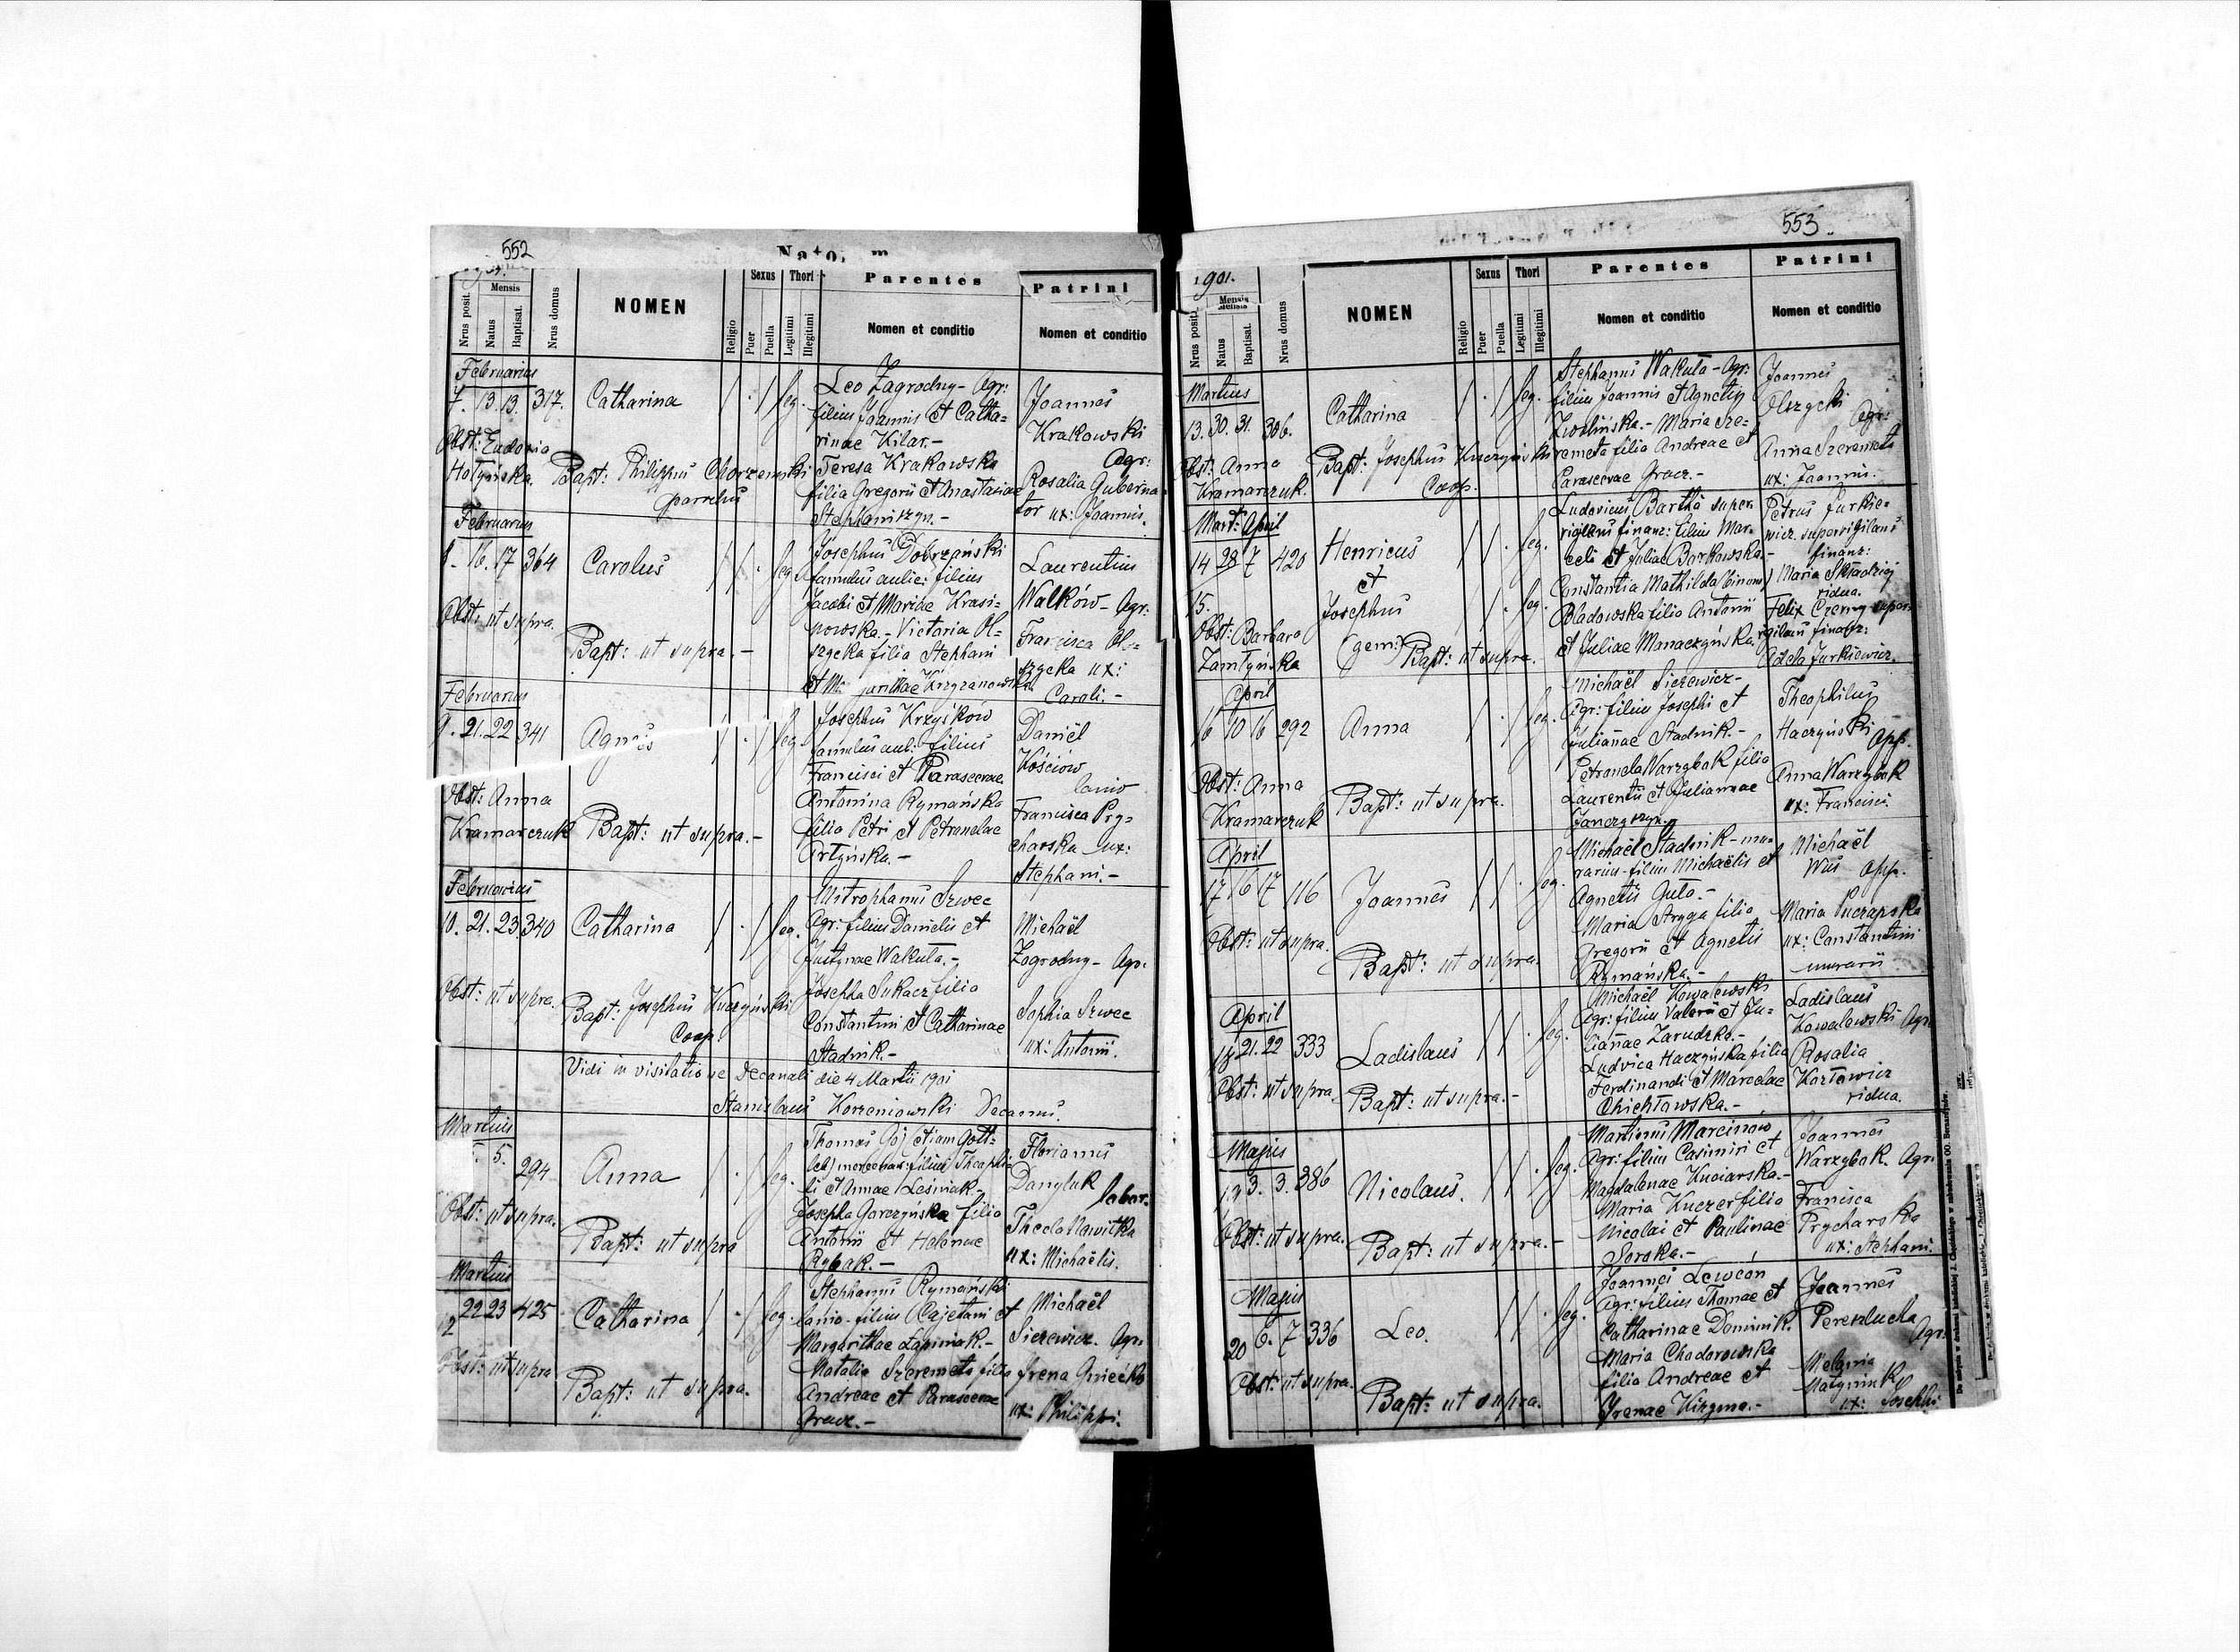 552
Natorum
1901.
Nrus posit.
Mensis
Natus
Baptisat.
Nrus domus
NOMEN
Religio
Sexus
Puer
Puella
Thori
Legitimi
Illegitimi
Parentes
Nomen et conditio
Patrini
Nomen et conditio
Februarius
7. 13. 13. 317. Catharina leg.
Leo Zagrodny - Agr:
filius Joannis et Catha-
rinae Kilar.-
Teresa Krakowska
filia Gregorii et Anastasiae
Stephaniszyn.-
Joannes
Krakowski
Agr:
Rosalia Guberna-
tor ux: Joannis.
Obst: Eudoxia
Hołyńska.
Bapt: Philippus Chorzemski
parochus
Februarius
8. 16. 17 364 Carolus leg.
Josephus Dobrzański
famulus aulic: filius
Jacobi et Mariae Krasi-
nowska.- Victoria Ol-
szycka filia Stephani
et Margarithae Krzyzanowska
Laurentius
Walków - Agr:
Francisca Ol-
szycka ux:
Caroli.-
Obst: ut supra.
Bapt: ut supra.-
Februarius
9. 21. 22 341 Agnes leg.
Josephus Krzyśków
famulus aul: filius
Francisci et Parascevae
Antonina Rymańska
filia Petri et Petronelae
Artyńska.-
Daniël
Kościów
lanio
Francisca Pry-
charska ux:
Stephani.-
Obst: Anna
Kramarczuk
Bapt: ut supra.-
Februarius
10. 21. 23. 340 Catharina leg.
Mitrophanus Szwec
Agr: filius Danielis et
Justynae Wakuła.-
Josepha Sukacz filia
Constantini et Catharinae
Stadnik.-
Michaël
Zagrodny - Agr.
Sophia Szwec
ux: Antonii.
Obst: ut supra.
Bapt: Josephus Kuczyński
Coop.
Vidi in visitatione Decanali die 4 Martii 1901
Stanislaus Korzeniowski Decanus.
Martius
5. 294 Anna leg.
Thomas Goj (etiam Gott-
lieb) mercenar: filius Theophi-
li et Annae Leśniak.-
Josepha Gorczyńska filia
Antonii et Helenae
Rybak.-
Florianus
Danyluk
labor:
Thecla Nawitka
ux: Michaëlis.
Obst: ut supra.
Bapt: ut supra
Martius
12 22 23 425 Catharina leg.
Stephanus Rymański
lanio - filius Cajetani et
Margarithae Łapiniak.-
Natalia Szeremeta filia
Andreae et Parascevae
Gracz.-
Michaël
Siezewicz. Agr.
Irena Gniećko
ux: Philippi.
Obst: ut supra
Bapt: ut supra.
553.
1901.
Nrus posit.
Mensis
Natus
Baptisat.
Nrus domus
NOMEN
Religio
Sexus
Puer
Puella
Thori
Legitimi
Illegitimi
Parentes
Nomen et conditio
Patrini
Nomen et conditio
Martius
13. 30. 31. 306. Catharina leg.
Stephanus Wakuła - Agr:
filius Joannis et Agnetis
Zwolińska.- Maria Sze-
remeta filia Andreae et
Parascevae Gracz.-
Joannes
Olszycki
Agr:
Anna Szeremeta
ux: Joannis.
Obst: Anna
Kramarczuk.
Bapt: Josephus Kuczyński
Coop.
Mart: April
14 28 7 420 Henricus leg.
et
15. Josephus leg.
(gem:)
Ludovicus Bartha super-
vigilans finanz: filius Mar-
celi et Juliae Barkowska.-
Constantia Mathilda (binom)
Bladowska filia Antonii
et Juliae Manaczyńska.
Petrus Jurkie-
wicz supervigilans
finanz:
Maria Składzień
vidua.
Felix Czerny super-
vigilans finanz:
Adela Jurkiewicz.
Obst: Barbara
Zamłyńska
Bapt: ut supra.
April
16 10 16 292 Anna leg.
Michaël Siezewicz-
Agr: filius Josephi et
Julianae Stadnik.-
Petronela Warzybok filia
Laurentii et Juliannae
Janczyszyn
Theophilus
Haczyński
Opp.
Anna Warzybok
ux: Francisci.
Obst: Anna
Kramarczuk
Bapt: ut supra.
April
17 16 17 116 Joannes leg.
Michaël Stadnik - mu-
rarius - filius Michaëlis et
Agnetis Guła.-
Maria Stryga filia
Gregorii et Agnetis
Rymańska.-
Michaël
Wus Opp.
Maria Puczapska
ux: Constantini
murarii
Obst: ut supra.
Bapt: ut supra.
April
18 21. 22 333 Ladislaus leg.
Michaël Kowalewski
Agr: filius Valerii et Ju-
lianae Zarudzka.-
Ludvica Haczyńska filia
Ferdinandi et Marcelae
Chichłowska.-
Ladislaus
Kowalewski Agr.
Rosalia
Kozłowicz
vidua.
Obst: ut supra.
Bapt: ut supra.-
Majus
19 3. 3. 386 Nicolaus. leg.
Martinus Marcinow
Agr: filius Casimiri et
Magdalenae Kuciarska.-
Maria Kuczer filia
Nicolai et Paulinae
Sorska.-
Joannes
Warzybok. Agr:
Francisca
Prycharska
ux: Stephani.
Obst: ut supra.
Bapt: ut supra.-
Majus
20 6. 7 336 Leo. leg.
Joannes Lewcón
Agr: filius Thomae et
Catharinae Dominik.
Maria Chodorowska
filia Andreae et
Irenae Kizyma.-
Joannes
Perezlucha
Agr:
Melania
Matyniuk
ux: Josephi.
Obst: ut supra.
Bapt: ut supra.